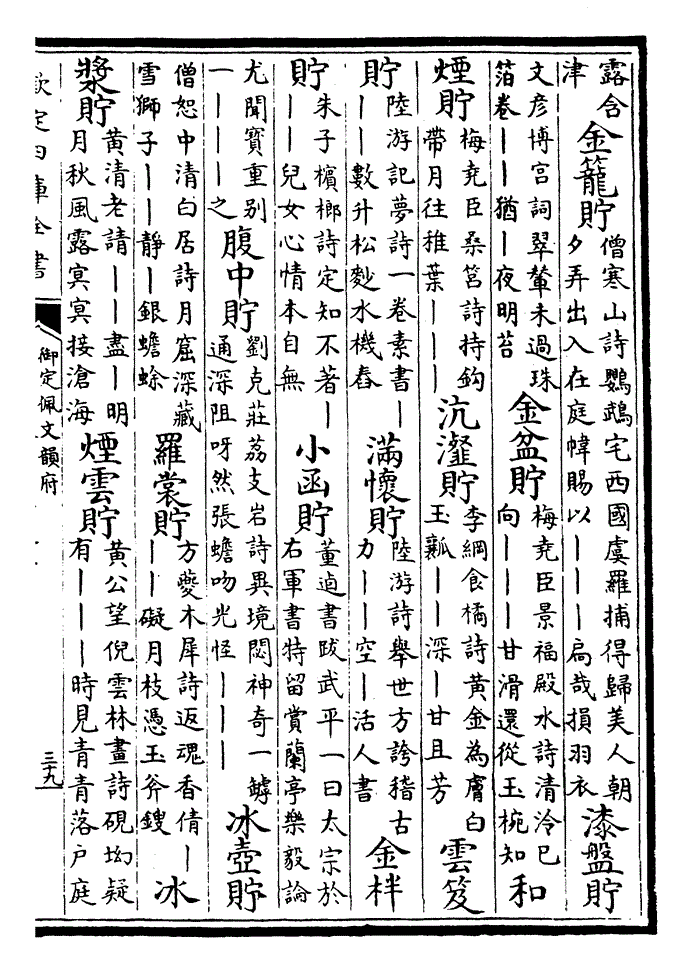 露含
津
金籠貯
僧寒山詩鸚鵡宅西國虞羅捕得歸美人朝
夕弄出入在庭幃賜以｜｜｜扃哉損羽衣
漆盤貯
文彥博宫詞翠輦未過珠
箔卷｜｜猶｜夜明苔
金盆貯
梅堯臣景福殿水詩清泠已
向｜｜｜甘滑還從玉椀知
和
煙貯
梅堯臣桑筥詩持鈎
帶月往稚葉｜｜｜
沆瀣貯
李綱食橘詩黄金為膚白
玉瓤｜｜深｜甘且芳
雲笈
貯
陸游記夢詩一卷素書｜
｜｜數升松麨水機舂
滿懷貯
陸游詩舉世方誇稽古
力｜｜空｜活人書
金柈
貯
朱子檳榔詩定知不著｜
｜｜兒女心情本自無
小函貯
董逌書跋武平一曰太宗於
右軍書特留賞蘭亭樂毅論
尤聞寶重别
一｜｜｜之
腹中貯
劉克莊荔支岩詩異境閟神奇一罅
通深阻呀然張蟾吻光怪｜｜｜
冰壺貯
僧恕中清白居詩月窟深藏
雪獅子｜｜靜｜銀蟾蜍
羅裳貯
方夔木犀詩返魂香倩｜
｜｜礙月枝憑玉斧鎪
冰
漿貯
黄清老請｜｜盡｜明
月秋風露冥冥接滄海
煙雲貯
黄公望倪雲林畫詩硯坳疑
有｜｜｜時見青青落户庭
欽定四庫全書
御定佩文韻府
三十九